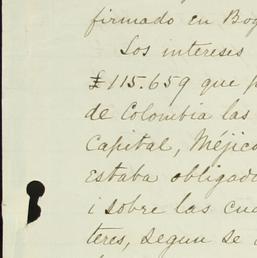 firmado en Bog
Los intereses
£115.659 que p
de Colombia las
Capital, Méjico
estaba obligad
i sobre las cua
teres, segun se